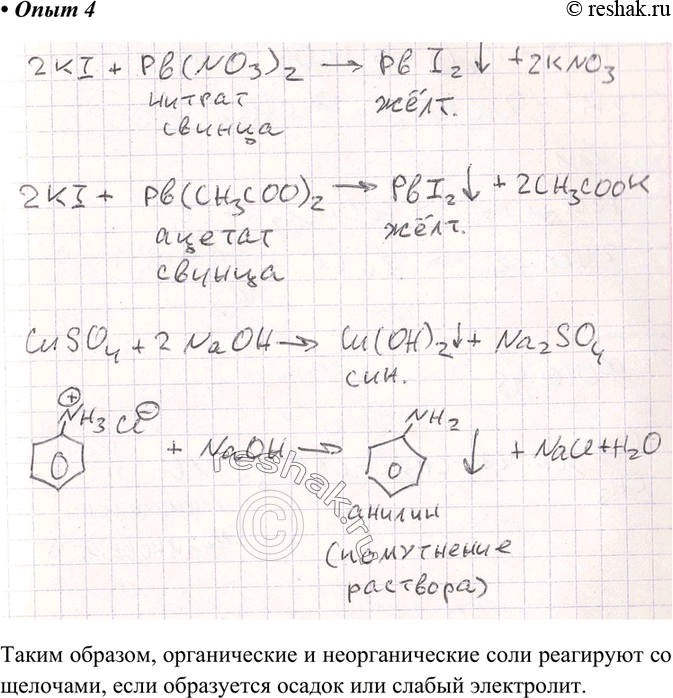 • Опыт 4
© reshak.ru
2KI + Pb(NO3)2 → PbI2↓ + 2KNO3
нитрат жёлт.
свинца
2KI + Pb(CH3COO)2 → PbI2↓ + 2CH3COOK
ацетат жёлт.
свинца
CuSO4 + 2NaOH → Cu(OH)2↓ + Na2SO4
син.
⊕ NH3 Cl ⊖ + NaOH → NH2 ↓ + NaCl + H2O
анилин
(помутнение
раствора)
reshak.ru
©
Таким образом, органические и неорганические соли реагируют со
щелочами, если образуется осадок или слабый электролит.